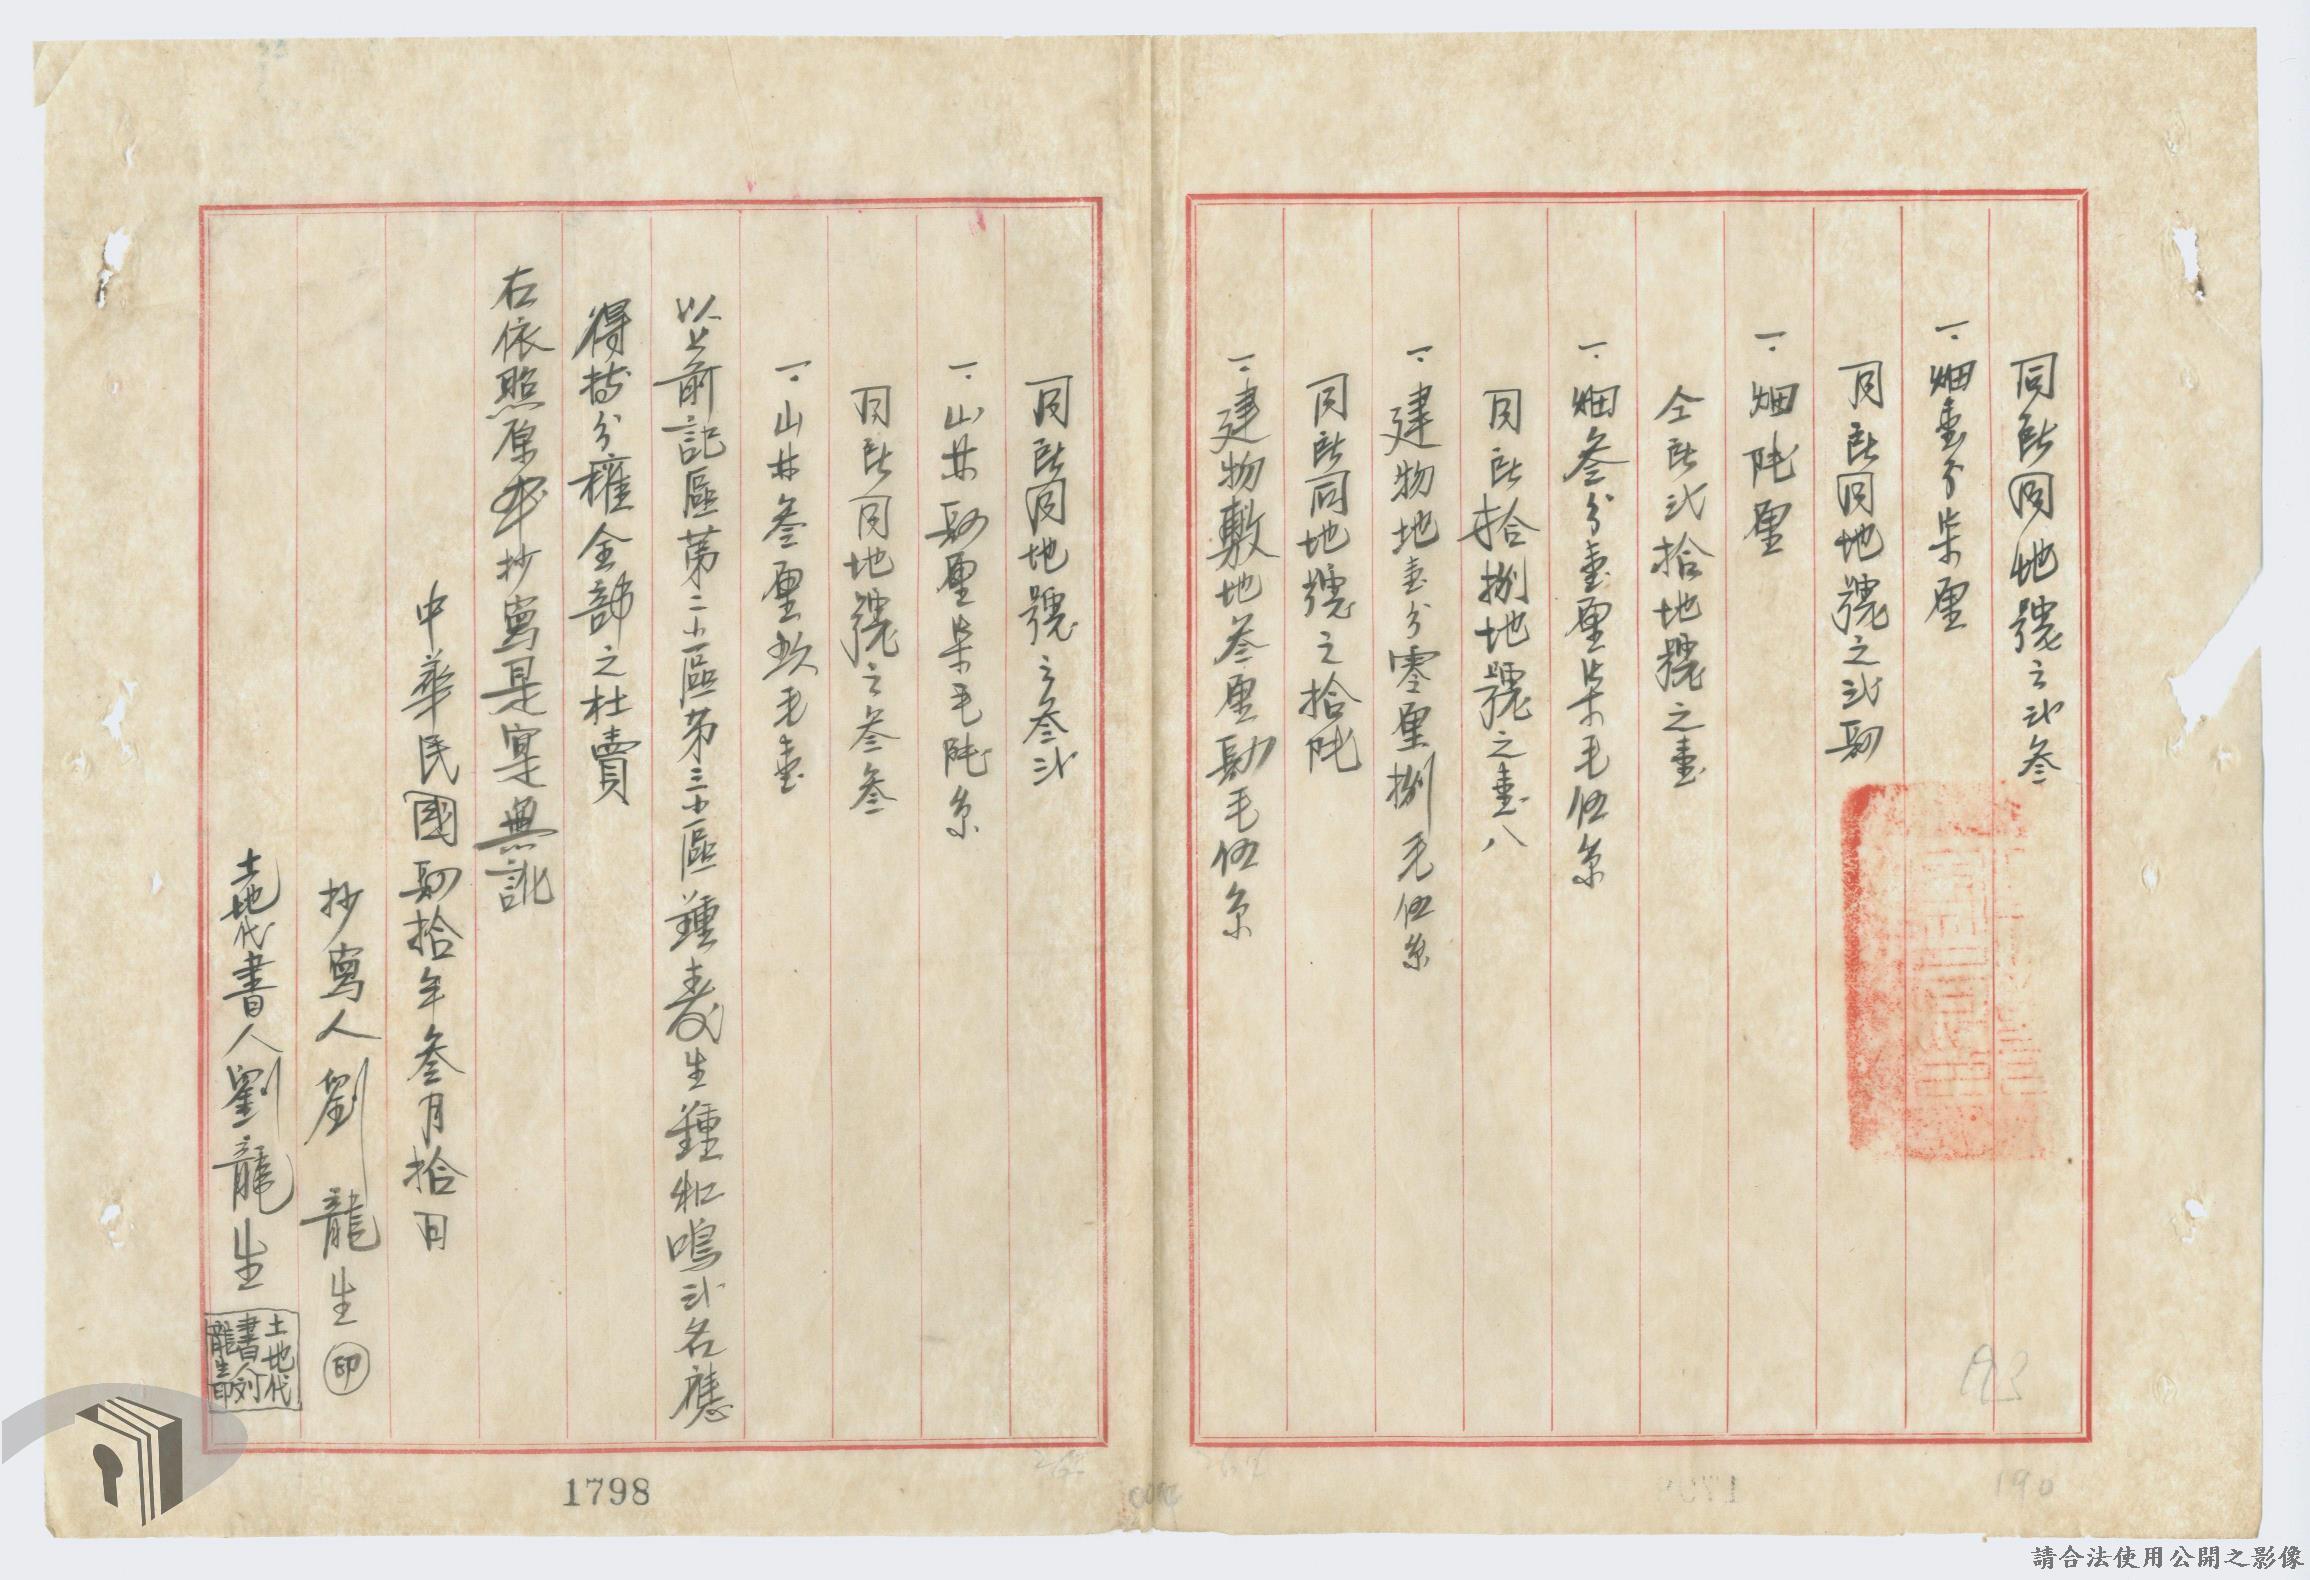 同所同地號之弍叄
一. 畑壹分柒厘
同所同地號之弍肆
一. 畑陸厘
仝所弍拾地號之壹
一. 畑叄分壹厘柒毛伍糸
同所拾捌地號之壹八
一. 建物地壹分零厘捌毛伍糸
同所同地號之拾陸
一. 建物敷地叄厘肆毛伍糸
同所同地號之叄弍
一. 山林肆厘柒毛陸糸
同所同地號之叄叄
一. 山林叄厘玖毛壹
以上前記區第二小區第三小區鍾壽生鍾和鳴弍名應
得持分權全部之杜賣
右依照原本抄寫是寔無訛
中華民國肆拾年叄月拾日
抄寫人劉龍生 印
土地代書人劉龍生
土地代書人刘龍生印
193
190
1798
請合法使用公開之影像